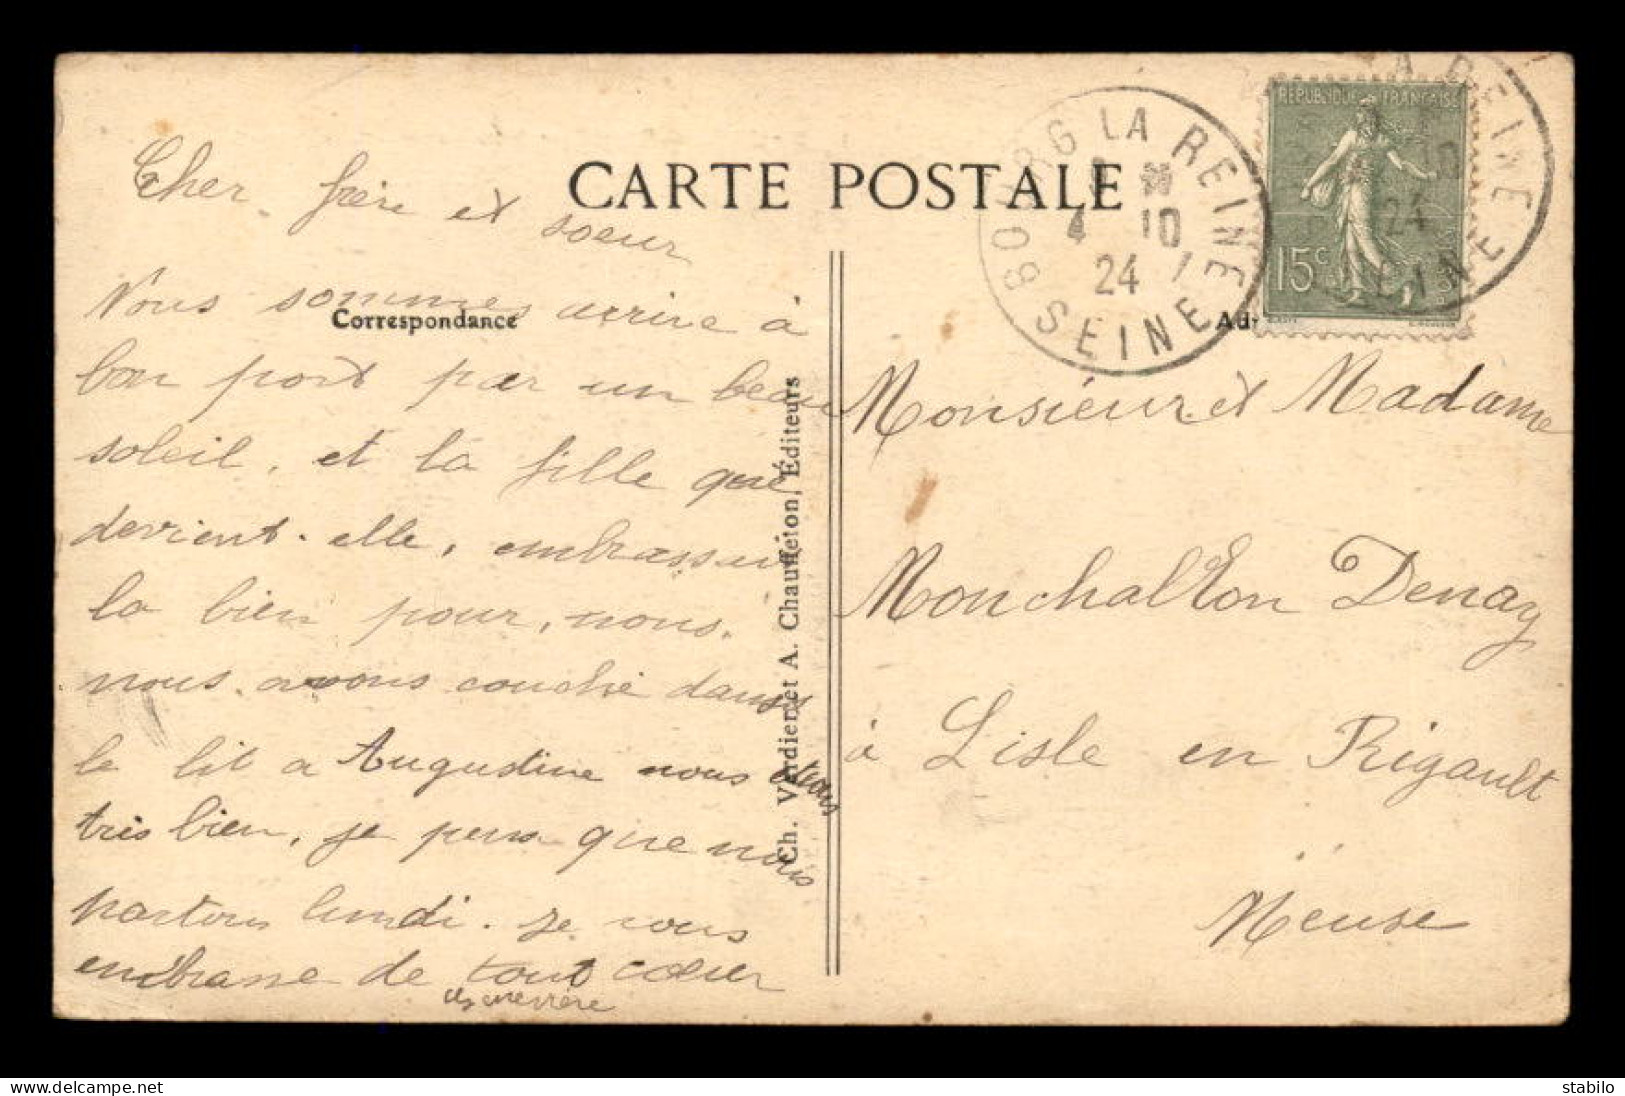 CARTE POSTALE
Correspondance
Cher frère et
soeur
Nous sommes arrive à
bon port par un beau
soleil, et la fille que
devient-elle, embrasser
la bien pour, nous.
nous avons couche dans
le lit a Augustine nous étions
très bien, je pense que nous
partons lundi. je vous
embrasse de tout cœur
Ch. Verdier et A. Chauffeton, Éditeurs
BOURG LA REINE
4 10
24
SEINE
REPUBLIQUE FRANÇAISE
15c
Monsieur et Madame
Monchablon Denay
à Lisle en Rigault
Meuse
stabilo